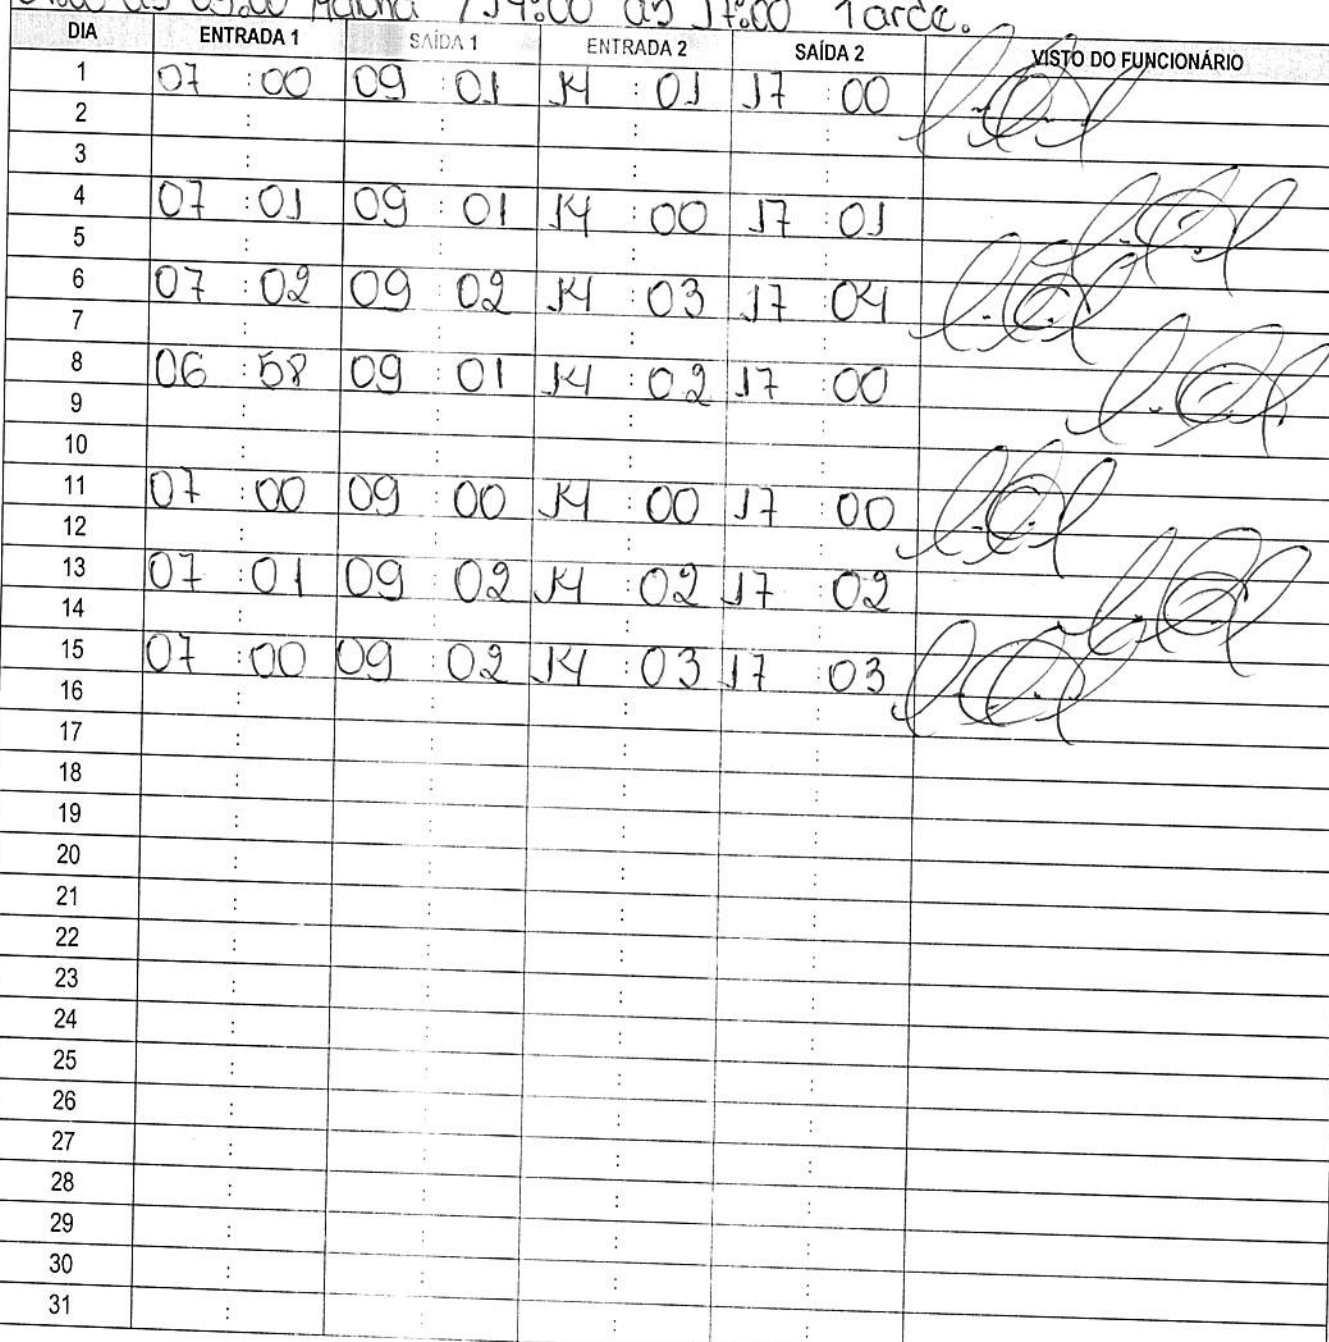 às 09:00 Manhã / 14:00 às 17:00 Tarde.
DIA ENTRADA 1 SAÍDA 1 ENTRADA 2 SAÍDA 2 VISTO DO FUNCIONÁRIO
1 07:00 09:01 14:01 17:00
2 : : : :
3 : : : :
4 07:01 09:01 14:00 17:01
5 : : : :
6 07:02 09:02 14:03 17:04
7 : : : :
8 06:58 09:01 14:02 17:00
9 : : : :
10 : : : :
11 07:00 09:00 14:00 17:00
12 : : : :
13 07:01 09:02 14:02 17:02
14 : : : :
15 07:00 09:02 14:03 17:03
16 : : : :
17 : : : :
18 : : : :
19 : : : :
20 : : : :
21 : : : :
22 : : : :
23 : : : :
24 : : : :
25 : : : :
26 : : : :
27 : : : :
28 : : : :
29 : : : :
30 : : : :
31 : : : :